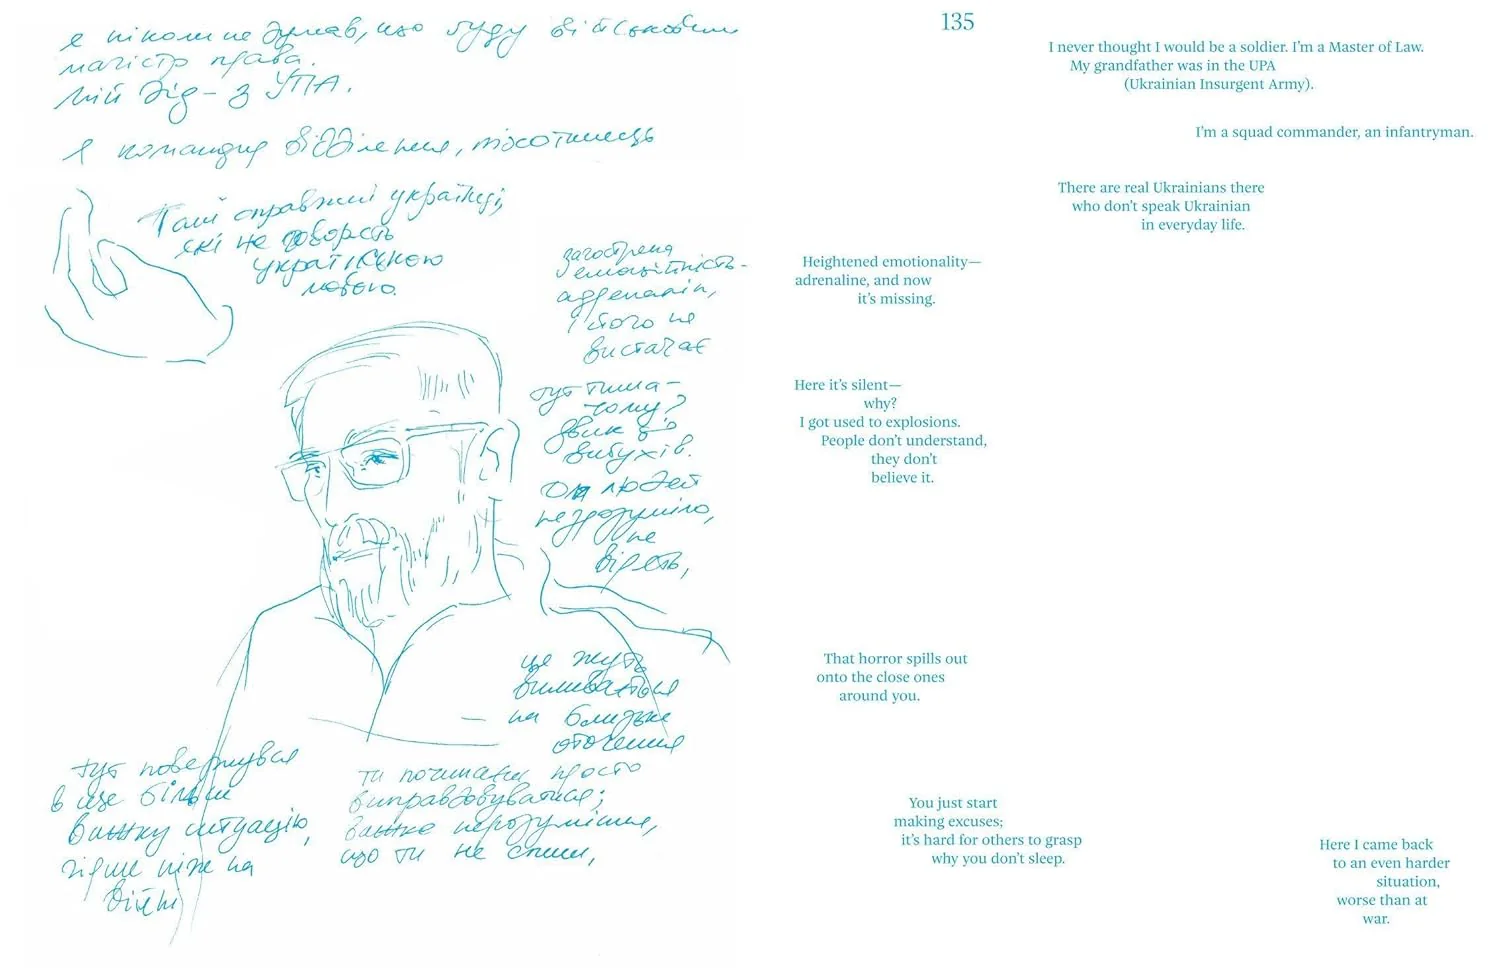 я ніколи не думав, що буду військовим
магістр права.
мій дід – з УПА.
я командир відділення, піхотинець
Там справжні українці,
які не говорять
українською
мовою.
загострена
емоційність –
адреналін,
і його не
вистачає
тут тиша –
чому?
звик до
вибухів.
Для людей
незрозуміло,
не
вірять,
це жуть
виливається
на близьке
оточення
ти починаєш просто
виправдовуватися;
важке нерозуміння,
що ти не спиш,
тут повернувся
в ще більш
важку ситуацію,
гірше ніж на
війні
135
I never thought I would be a soldier. I’m a Master of Law.
My grandfather was in the UPA
(Ukrainian Insurgent Army).
I’m a squad commander, an infantryman.
There are real Ukrainians there
who don’t speak Ukrainian
in everyday life.
Heightened emotionality—
adrenaline, and now
it’s missing.
Here it’s silent—
why?
I got used to explosions.
People don’t understand,
they don’t
believe it.
That horror spills out
onto the close ones
around you.
You just start
making excuses;
it’s hard for others to grasp
why you don’t sleep.
Here I came back
to an even harder
situation,
worse than at
war.